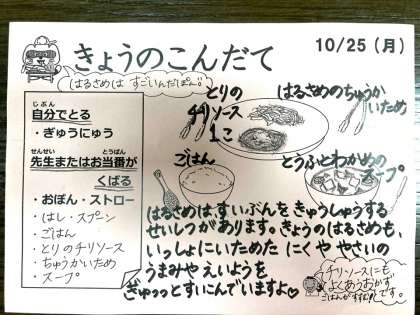 きょうのこんだて
10/25（月）
はるさめは すごいんだぽん。
じぶん
自分でとる
・ぎゅうにゅう
せんせい とうばん
先生またはお当番が
くばる
・おぼん・ストロー
・はし・スプーン
・ごはん
・とりのチリソース
・ちゅうかいため
・スープ
とりの
チリソース
1こ
はるさめのちゅうか
いため
ごはん
とうふとわかめの
スープ
はるさめは すいぶんを きゅうしゅうする
せいしつがあります。きょうのはるさめも、
いっしょにいためた にくや やさいの
うまみや えいようを
ぎゅっっとすいこんでいますよ♡
チリソースにも
よくあうおかず
ごはんがすすむ です。